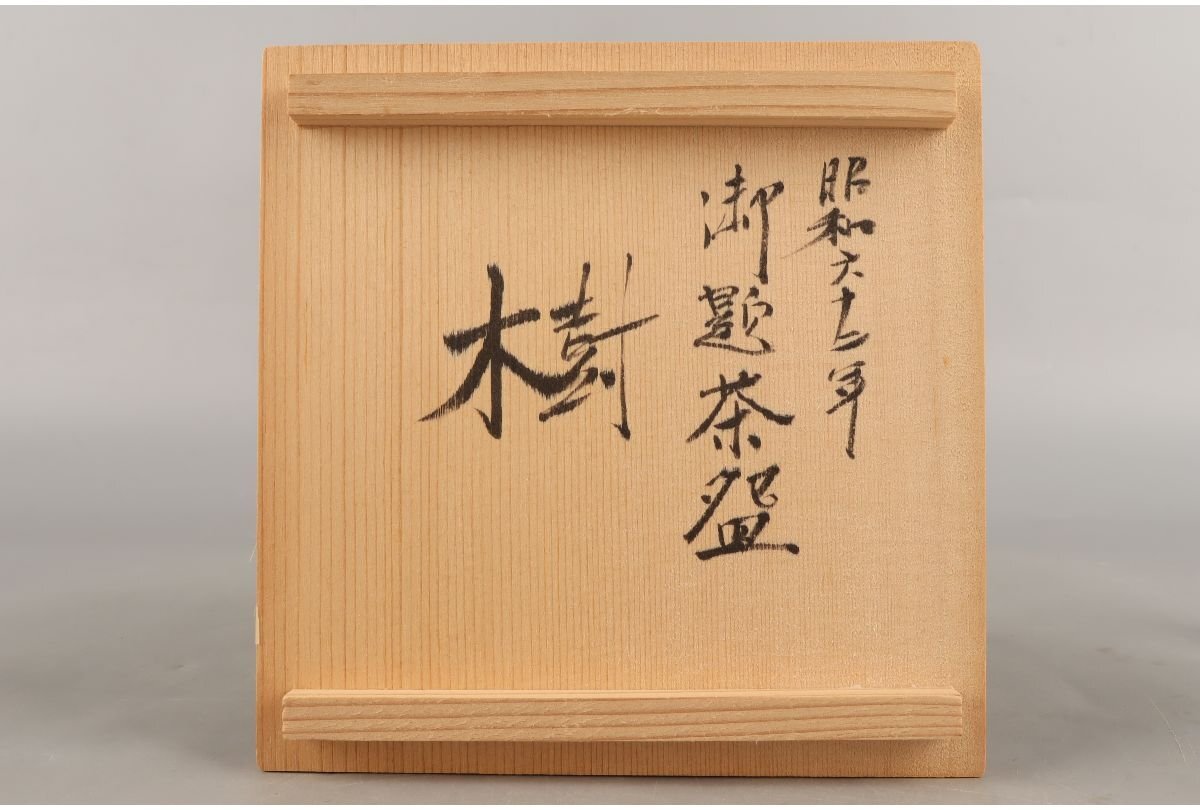 昭和六十二年
御題茶盌
樹